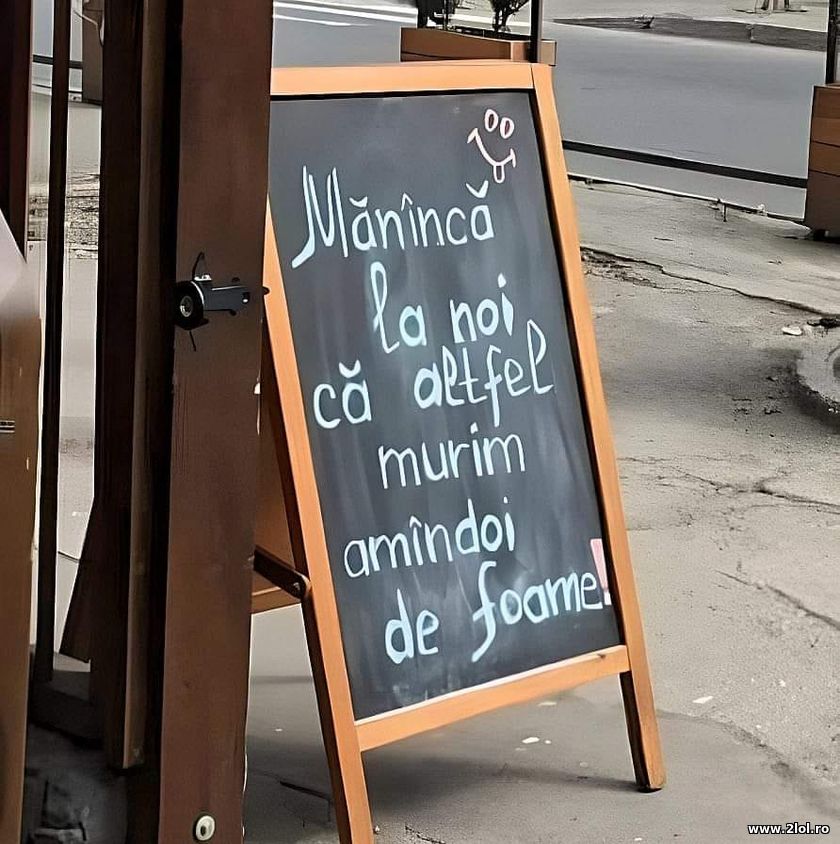 Mănîncă
la noi
că altfel
murim
amîndoi
de foame!
www.2lol.ro